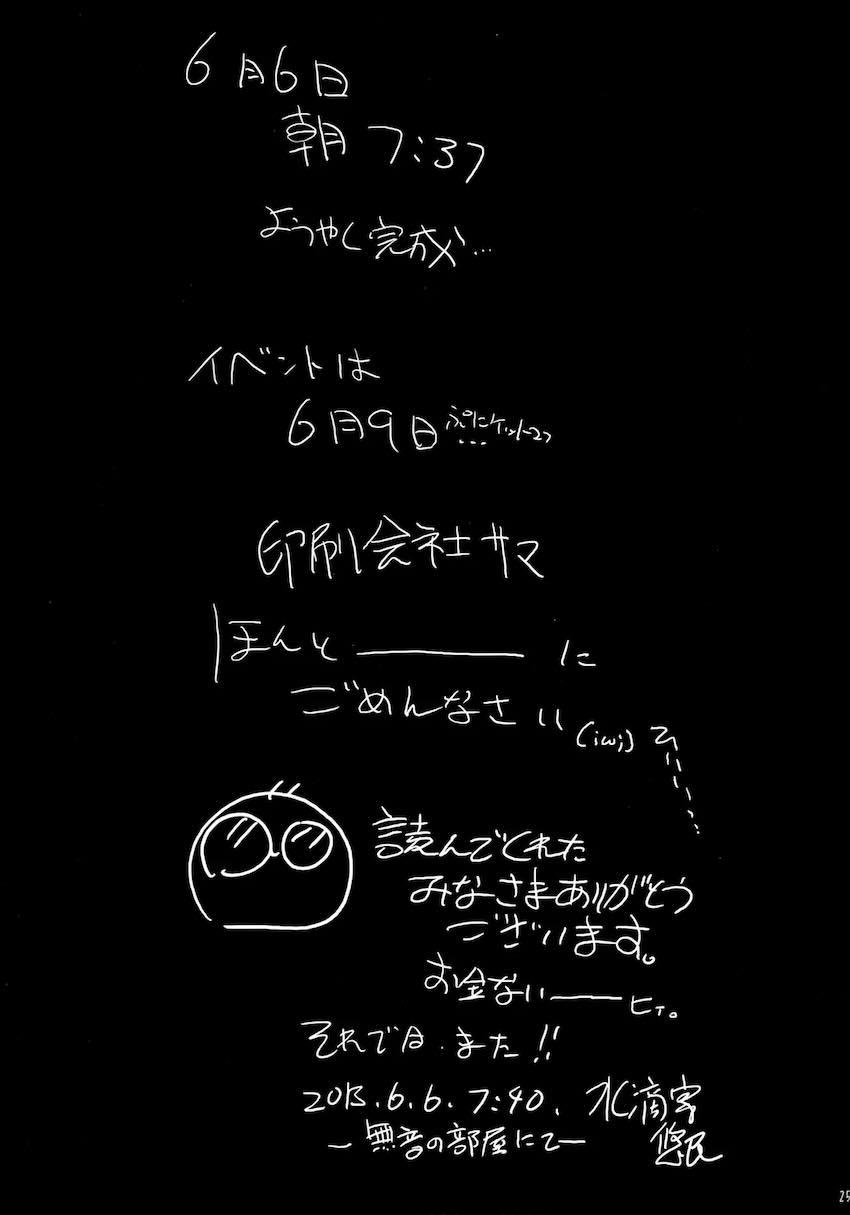 6月6日
朝 7:37
ようやく完成…
イベントは
6月9日 ぷにケット27
印刷会社サマ
ほんと―――に
ごめんなさい(;ω;)
読んでくれた
みなさまありがとう
ございます。
お金ない――ヒィ。
それでは、また!!
2013.6.6.7:40. 水滴家
―無音の部屋にて― 悠民
25